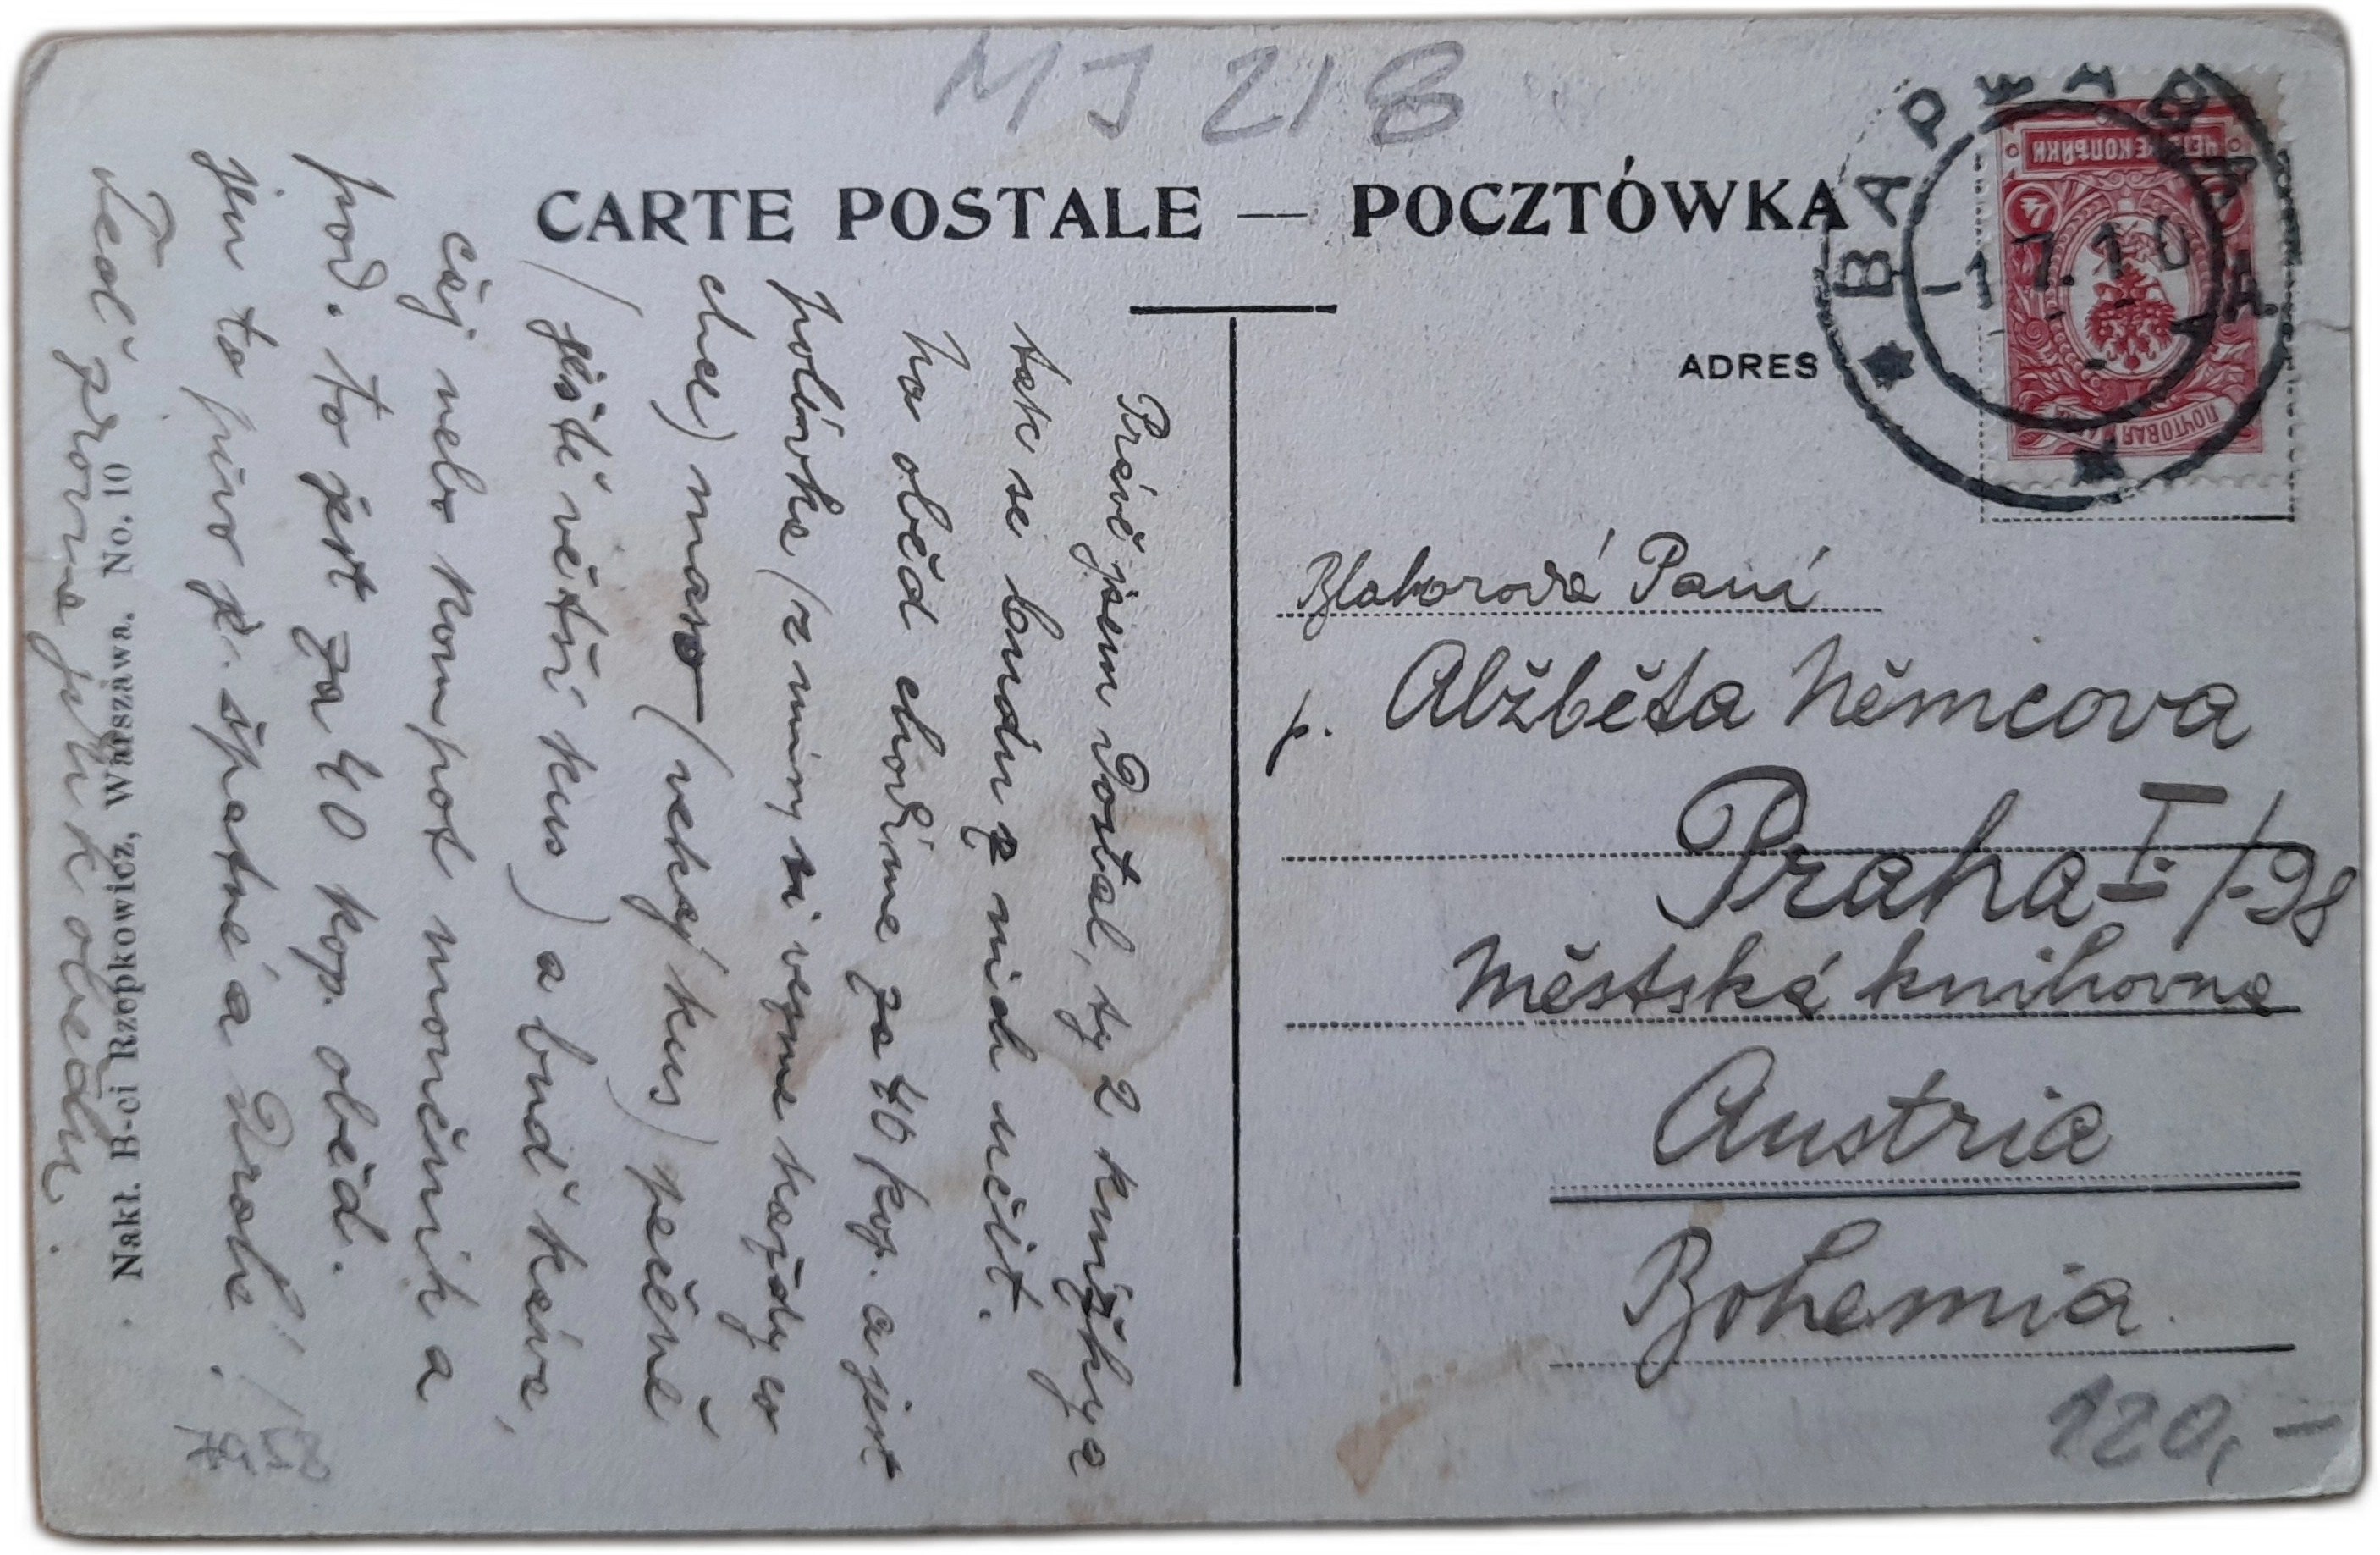 MJ 218
CARTE POSTALE — POCZTÓWKA
ВАРШАВА
17.1.10
ЧЕТЫРЕ КОПѢЙКИ
4
ПОЧТОВАЯ МАРКА
ADRES
Paní
p. Alžběta Němcova
Praha I./-98
Městská knihovna
Austria
Bohemia.
120,-
Právě jsem dostal, ty 2 knížky a
tak se budu z nich učit.
Na oběd chodíme za 40 kop. a jest
polívka (z mísy si vezme každý co
chce) maso (velký kus) pečeně
(ještě větší kus) a buď káva,
čaj nebo kompot moučník a
pod. to jest za 40 kop. oběd.
jen to pivo je špatné a drahé!
Teď zrovna jdu k obědu.
Nakł. B-ci Rzepkowicz, Warszawa. No. 10